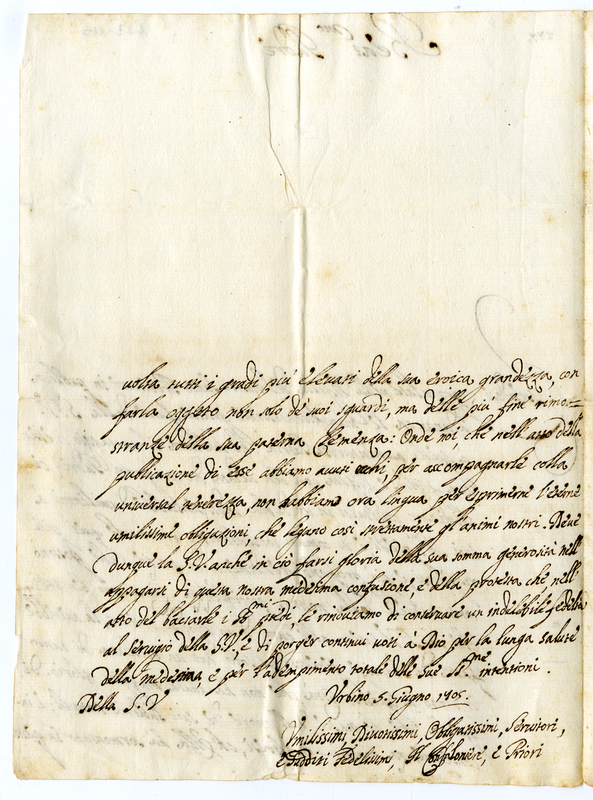 volta tutti i gradi più elevati della sua eroica grandezza, con
farla oggetto non solo de' suoi sguardi, ma delle più fine rimo=
stranze della sua paterna Clemenza: Onde noi, che nell'atto della
publicazione di esse abbiamo avuti occhi, per accompagnarle colla
universal tenerezza, non habbiamo ora lingua per esprimerne l'eterne
umilissime obligazioni, che legano così strettamente gl'animi nostri. Deve
dunque la S.V. anche in ciò farsi gloria della sua somma generosità nell'
appagarsi di questa nostra medesima confusione, e della protesta che nell'
atto del baciarle i SS.mi piedi le rinoviamo di conservare un indelebile fedeltà
al servigio della S.V., e di porger continui voti à Dio per la lunga salute
della medesima, e per l'adempimento totale delle sue SS.me intentioni.
Della S. V Urbino 5. Giugno 1705.
Umilissimi, Divotissimi, Obligatissimi, Servitori,
e Sudditi Fedelissimi, Il Confaloniere, e Priori